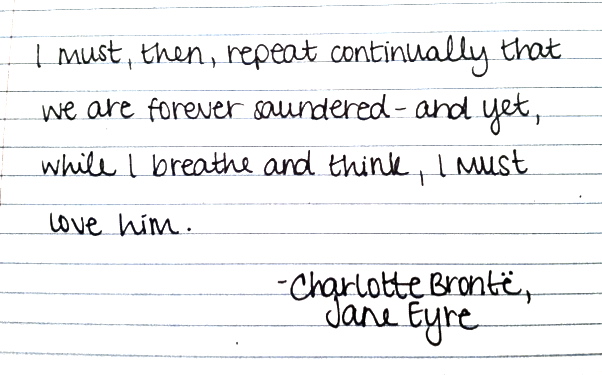 I must, then, repeat continually that
we are forever saundered - and yet,
while I breathe and think, I must
love him.
-Charlotte Brontë,
Jane Eyre